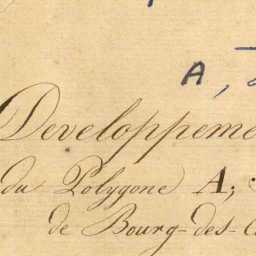 A,
Developpeme
du Polygone A;
de Bourg-des-C